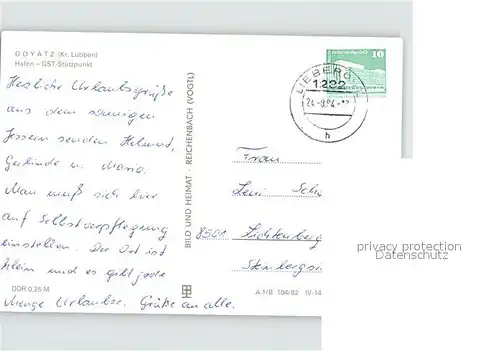 GOYATZ (Kr. Lübben)
Hafen - GST-Stützpunkt
Herzliche Urlaubsgrüße
aus dem sonnigen
Jessern senden Helmut,
Gerlinde u. Mario.
Man muß sich hier
auf Selbstverpflegung
einstellen. Der Ort ist
klein und es gibt jede
Menge Urlauber. Grüße an alle.
DDR 0,25 M
BILD UND HEIMAT · REICHENBACH (VOGTL)
A 1/B 104/82 IV-14
10
24.-8.84-
h
Frau
Leni
8501 Lichtenberg
privacy protection
Datenschutz